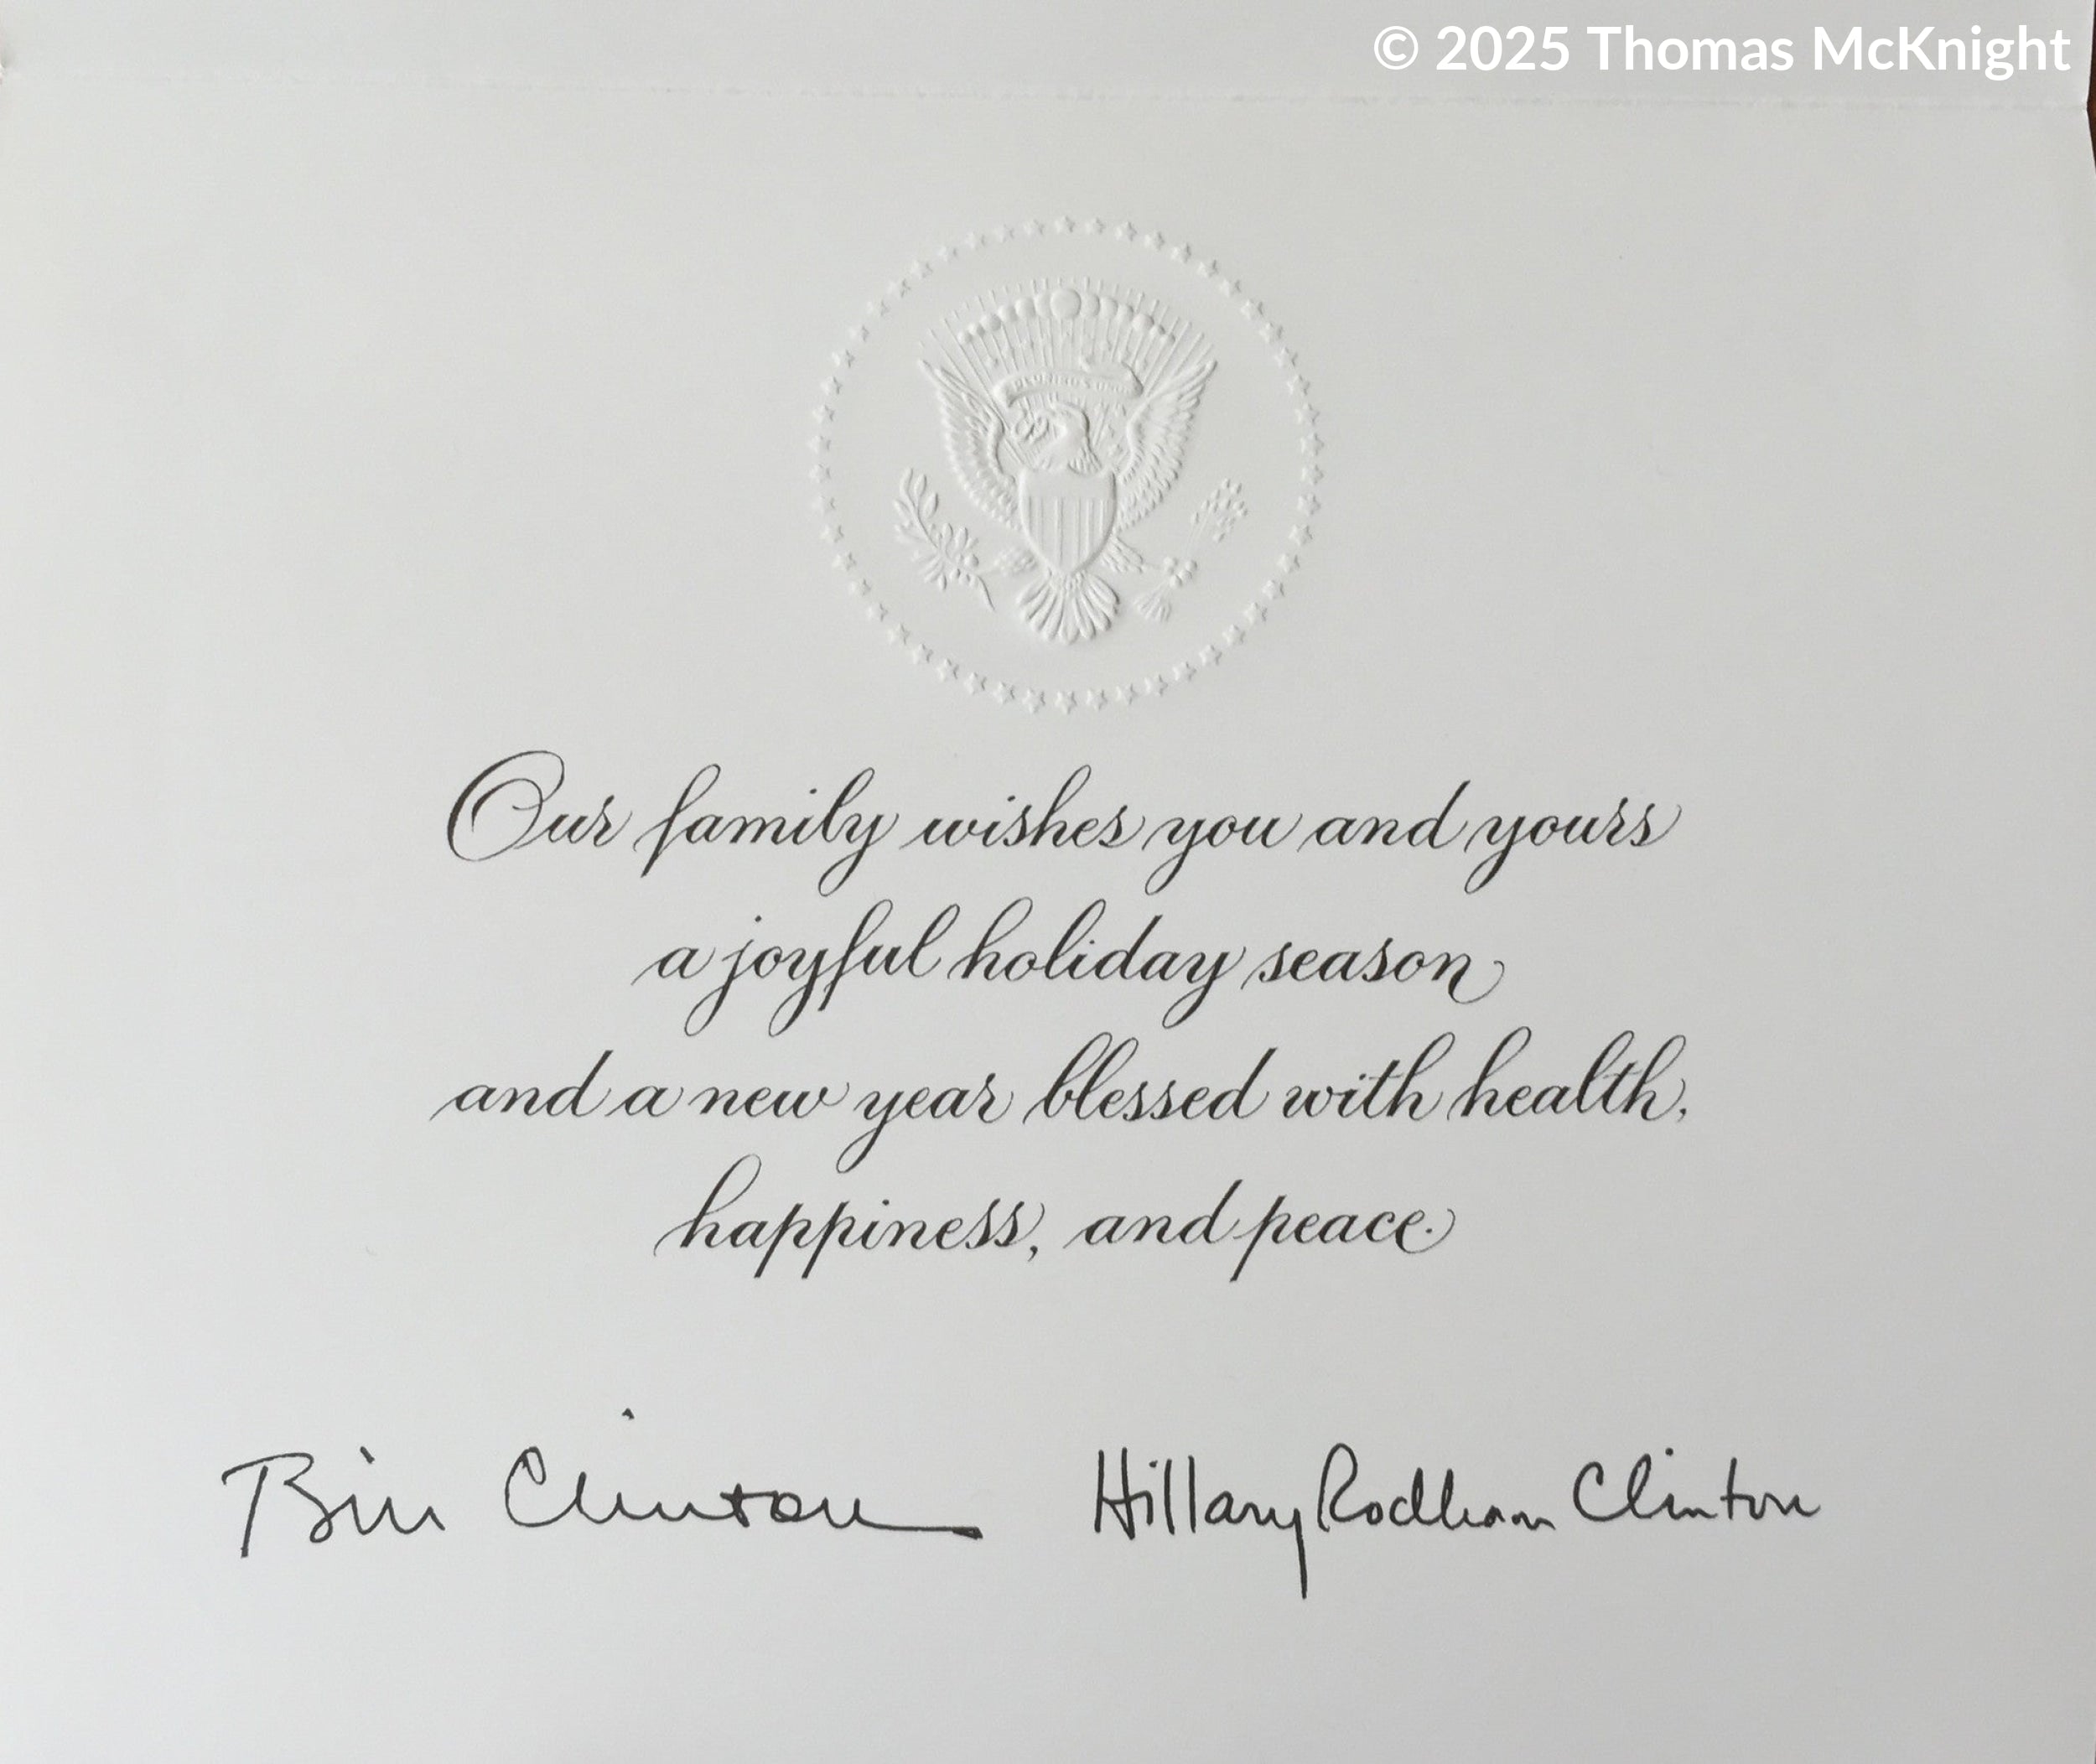 © 2025 Thomas McKnight
PLURIBUS UNUM
Our family wishes you and yours
a joyful holiday season
and a new year blessed with health,
happiness, and peace.
Bill Clinton Hillary Rodham Clinton